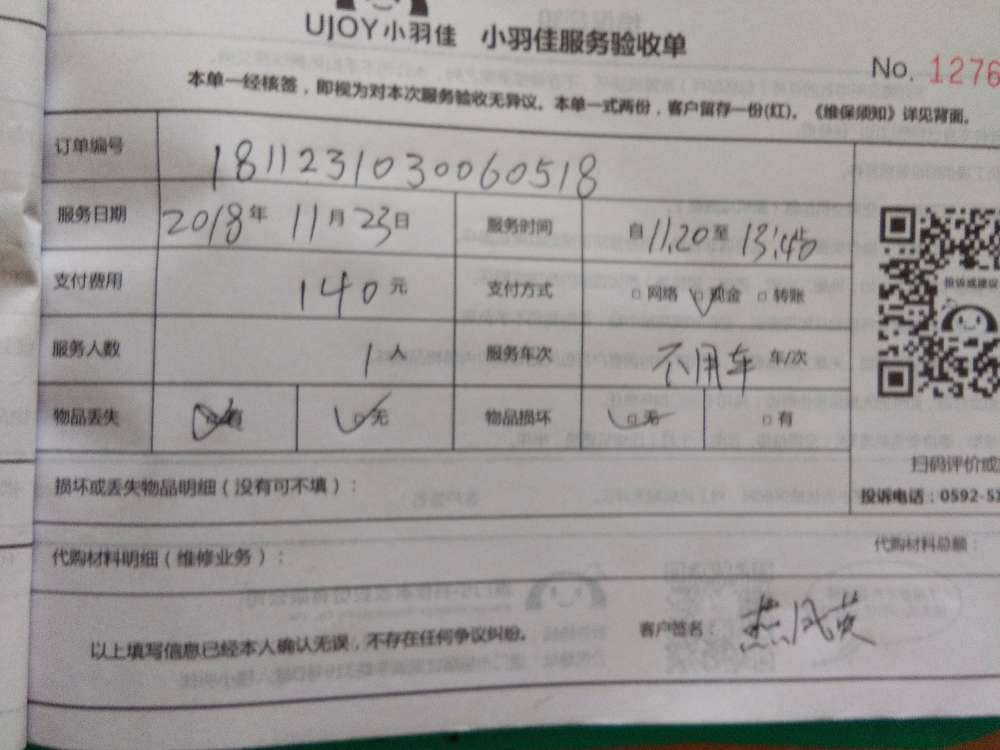 UJOY小羽佳 小羽佳服务验收单
No. 1276
本单一经核签，即视为对本次服务验收无异议。本单一式两份，客户留存一份(红)。《维保须知》详见背面。
订单编号 1811231030060518
服务日期 2018年 11月 23日 服务时间 自 11.20 至 13:40 止
支付费用 140元 支付方式 □网络 □现金 □转账
投诉或建议
服务人数 1人 服务车次 不用车 年/次
物品丢失 □有 □无 物品损坏 □无 □有
扫码评价或
损坏或丢失物品明细（没有可不填）：
投诉电话：0592-5
代购材料明细（维修业务）：
代购材料总额：
以上填写信息已经本人确认无误，不存在任何争议纠纷。 客户签名：